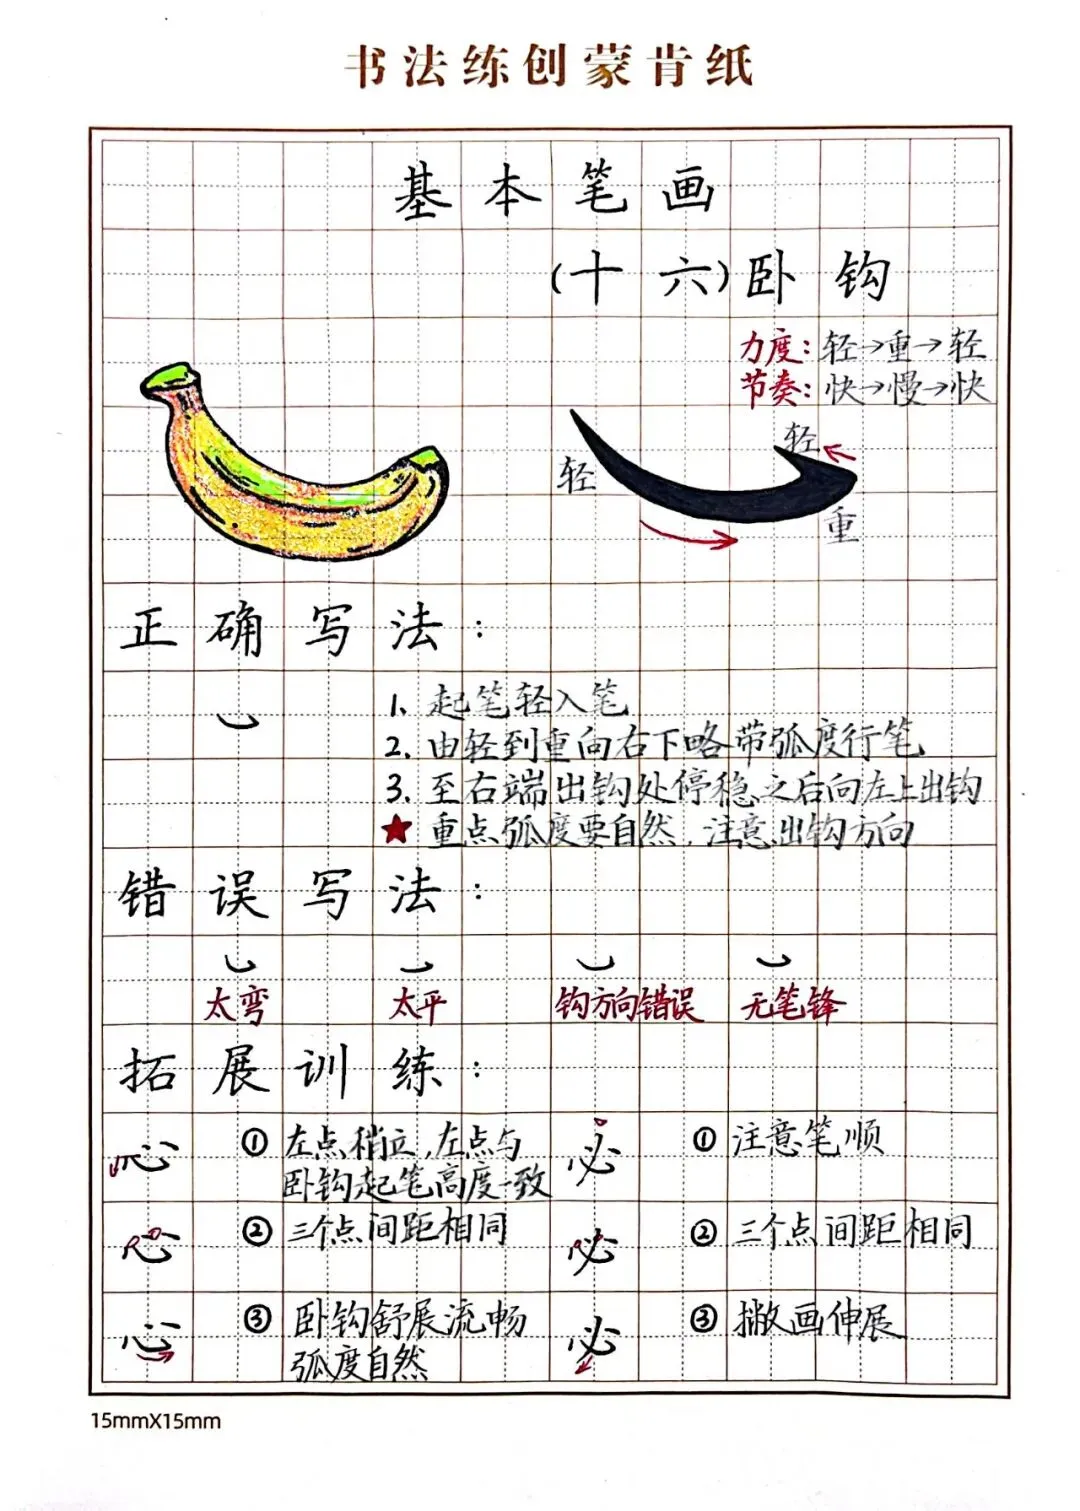 书法练创蒙肯纸
基本笔画
(十六)卧钩
力度：轻→重→轻
节奏：快→慢→快
轻
轻
重
正确写法：
1. 起笔轻入笔
2. 由轻到重向右下略带弧度行笔
3. 至右端出钩处停稳之后向左上出钩
★ 重点弧度要自然，注意出钩方向
错误写法：
太弯 太平 钩方向错误 无笔锋
拓展训练：
心 ① 左点稍立，左点与卧钩起笔高度一致
心 ② 三个点间距相同
心 ③ 卧钩舒展流畅弧度自然
必 ① 注意笔顺
必 ② 三个点间距相同
必 ③ 撇画伸展
15mmX15mm